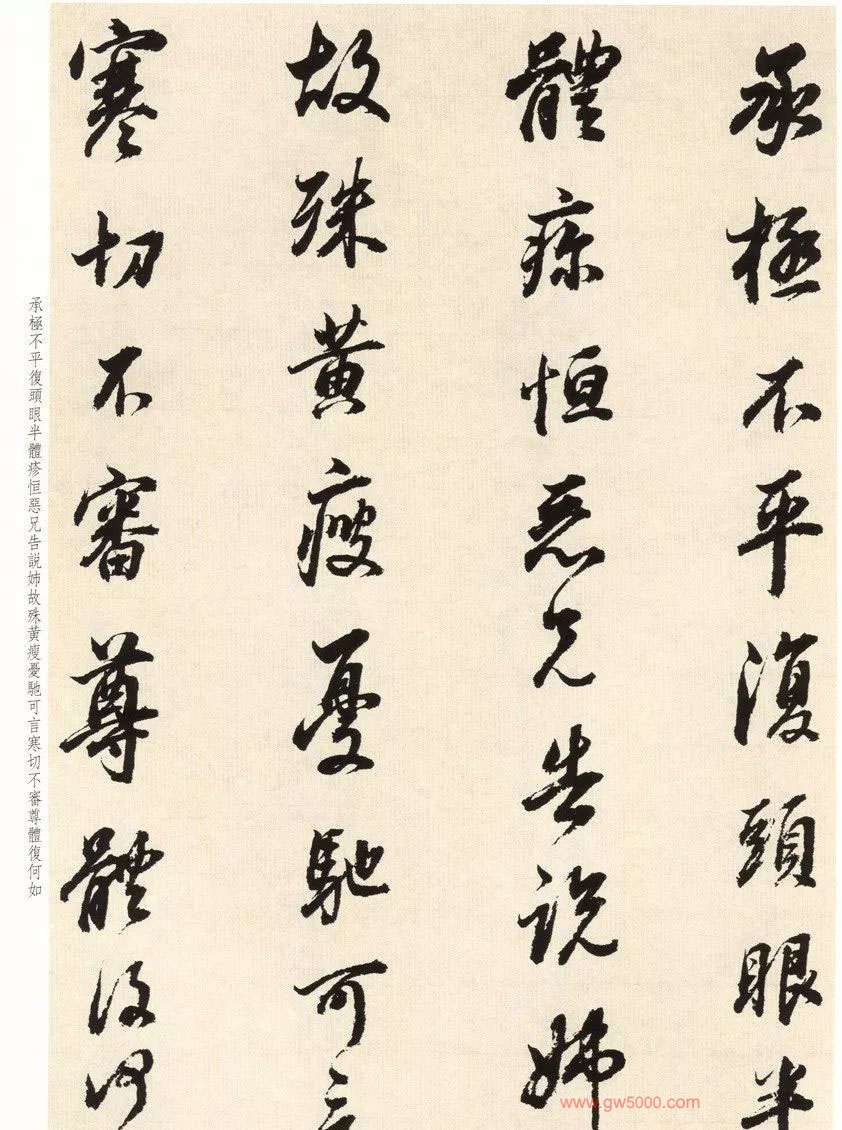 承極不平復頭眼半
體疹恒惡兄告說姉
故殊黃瘦憂馳可言
寒切不審尊體復何
承極不平復頭眼半體疹恒惡兄告說姉故殊黃瘦憂馳可言寒切不審尊體復何如
www.gw5000.com